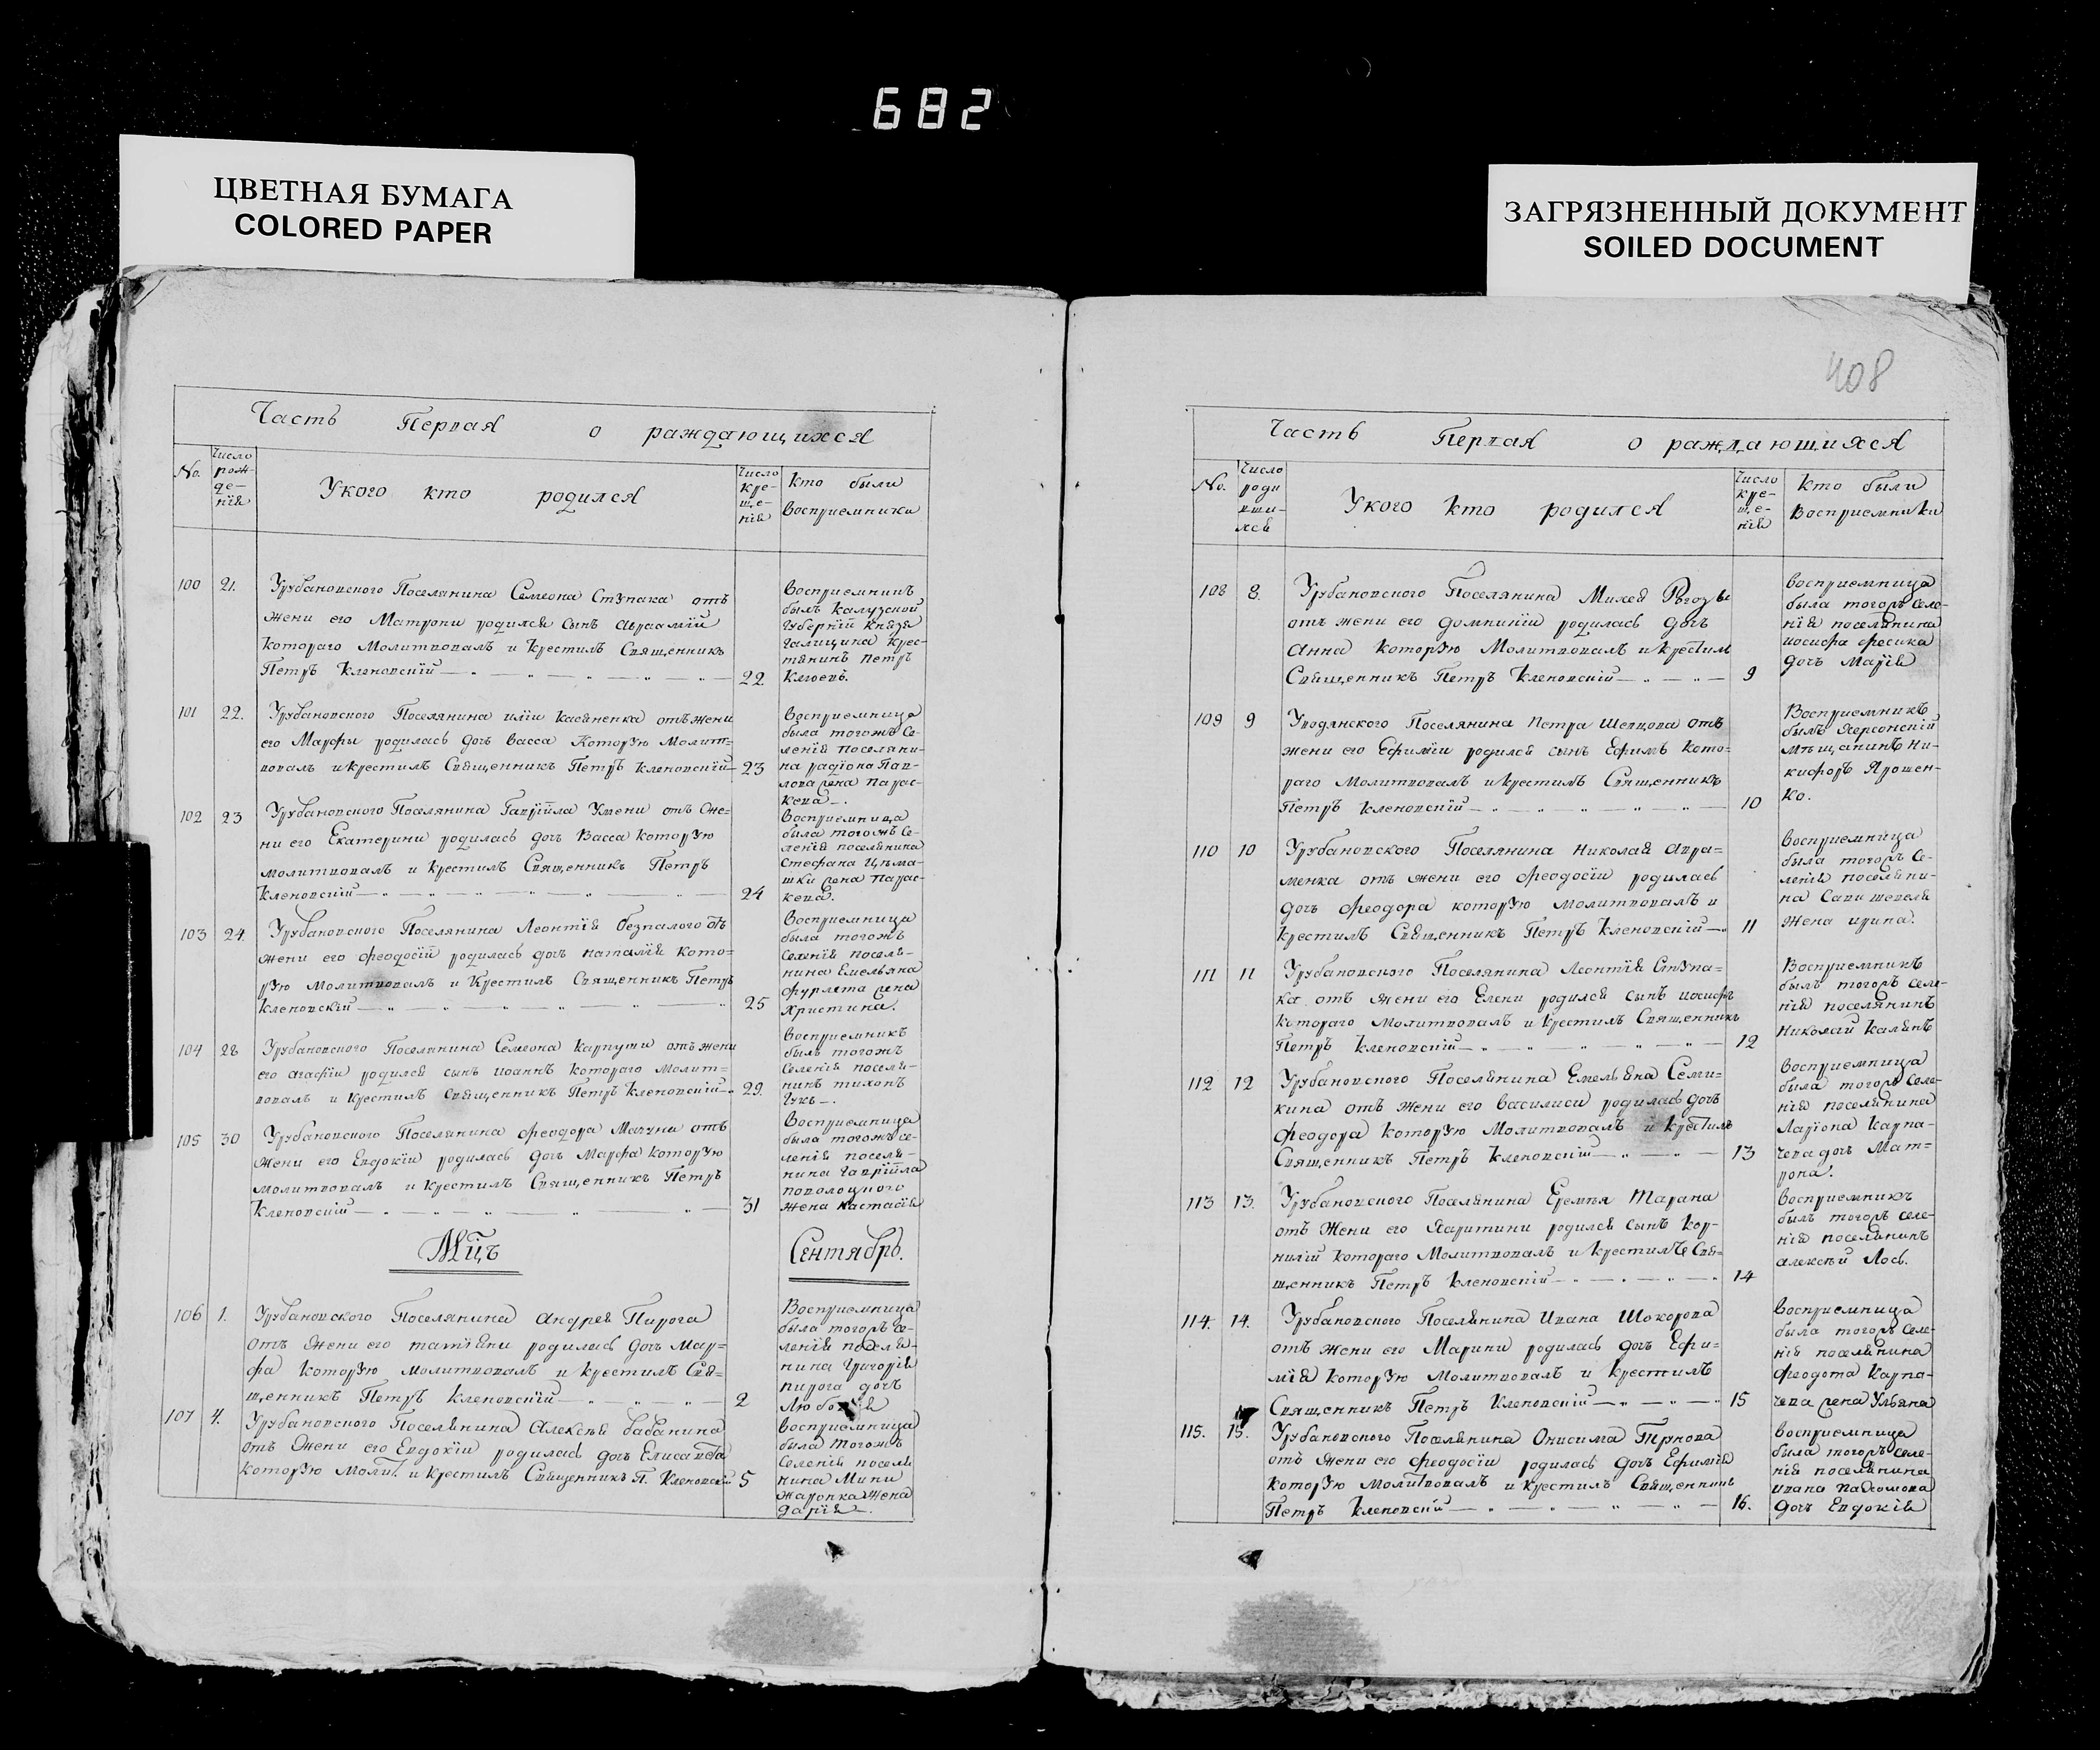 682
ЦВЕТНАЯ БУМАГА
COLORED PAPER
ЗАГРЯЗНЕННЫЙ ДОКУМЕНТ
SOILED DOCUMENT
Часть Первая о раждающихся
No.
Число
рож-
де-
нія
У кого кто родился
Число
кре-
ще-
нія
кто были
восприемники
100 21. Урубановского Поселянина Семеона Ступака отъ
жени его Матрони родился сынъ авраамій
котораго Молитвовалъ и крестилъ Священникъ
Петръ кленовскій 22
восприемникъ
былъ калузской
губерній князя
галищина крес-
тянинъ петръ
101 22. Урубановского Поселянина иліи касяненка отъ жени
его Марфы родилась дочь васса которую Молит=
вовалъ и крестилъ Священникъ Петръ кленовскій 23
восприемница
была тогожъ се-
ленія поселяни-
на радіона Пав-
лова жена парас-
кева
102 23 Урубановского Поселянина Гавріила Умени отъ же=
ни его Екатерини родилась дочь Васса которую
молитвовалъ и крестилъ Священникъ Петръ
кленовскій 24
восприемница
была тогожъ се-
ленія поселянина
стефана Цима-
шки жена парас-
кева.
103 24. Урубановского Поселянина Леонтія безпалого отъ
жени его феодосіи родилась дочь наталія кото=
рую молитвовалъ и крестилъ Священникъ Петръ
кленовскій 25
восприемница
была тогожъ
селенія поселя-
нина Емельяна
фурлета жена
христина.
104 28 Урубановского Поселянина Семеона карпуши отъ жени
его агафіи родился сынъ иоаннъ котораго молит=
вовалъ и крестилъ священникъ Петръ кленовскій 29.
восприемникъ
былъ тогожъ
селенія поселя-
нинъ тихонъ
Чукъ
105 30 Урубановского Поселянина феодора Мачуни отъ
жени его Евдокіи родилась дочь Марфа которую
молитвовалъ и крестилъ Священникъ Петръ
кленовскій 31
восприемница
была тогожъ се-
ленія поселя-
нина гавріила
поволоцкого
жена настасія
Мцъ Сентябрь.
106 1. Урубановского Поселянина андрея Пирога
отъ жени его татіяни родилась дочь мар=
фа которую молитвовалъ и крестилъ Свя=
щенникъ Петръ кленовскій 2
Восприемница
была тогожъ се-
ленія поселя-
нина григорія
пирога дочь
107 4. Урубановского Поселянина Алексея бабанина
отъ жени его Евдокіи родилась дочь Елисавета
которую молит. и крестилъ Священникъ П. кленовскій 5
восприемница
была тогожъ
селенія поселя
нина Мини
жаронка жена
дарія
408
Часть Первая о раждающихся
No.
Число
роди
вши-
хся
У кого кто родился
Число
кре-
ще-
нія
кто были
восприемники
108 8. Урубановского Поселянина Михея Рогозы
отъ жени его домникіи родилась дочь
анна которую Молитвовалъ и крестилъ
Священникъ Петръ кленовскій 9
восприемница
была тогожъ селе-
нія поселянина
иосифа фесика
дочь Марія
109 9 Уводянского Поселянина петра Шевцова отъ
жени его Ефиміи родился сынъ Ефимъ кото=
раго Молитвовалъ и крестилъ Священникъ
Петръ кленовскій 10
Восприемникъ
былъ херсонскій
мещанинъ Ни-
кифоръ Ярошен-
ко.
110 10 Урубановского Поселянина николая авра=
менка отъ жени его феодосіи родилась
дочь феодора которую молитвовалъ и
крестилъ Священникъ Петръ кленовскій 11
восприемница
была тогожъ се-
ленія поселяни-
на Сави шепеля
жена ирина.
111 11 Урубановского Поселянина Леонтія Ступа=
ка отъ жени его Елени родился сынъ иосифъ
котораго молитвовалъ и крестилъ Священникъ
Петръ кленовскій 12
Восприемникъ
былъ тогожъ селе-
нія поселянинъ
николай калянъ
112 12 Урубановского Поселянина Емельяна Семи=
кина отъ жени его василиси родилась дочь
феодора которую Молитвовалъ и крестилъ
Священникъ Петръ кленовскій 13
восприемница
была тогожъ селе-
нія поселянина
Ларіона карпа-
чева дочь Мат=
рона.
113 13. Урубановского Поселянина Еремея Тарана
отъ жени его харитини родился сынъ кор-
нилій котораго Молитвовалъ и крестилъ Свя=
щенникъ Петръ кленовскій 14
восприемникъ
былъ тогожъ селе-
нія поселянинъ
алексей Лось.
114. 14. Урубановского Поселянина ивана Шокорова
отъ жени его Марини родилась дочь Ефи=
мія которую молитвовалъ и крестилъ
Священникъ Петръ кленовскій 15
восприемница
была тогожъ селе-
нія поселянина
феодота карпа-
чева жена Ульяна
115. 15. Урубановского Поселянина Онисима Тернова
отъ жени его феодосіи родилась дочь Ефимія
которую молитвовалъ и крестилъ Священникъ
Петръ кленовскій 16.
восприемница
была тогожъ селе-
нія поселянина
ивана пахомова
дочь Евдокія